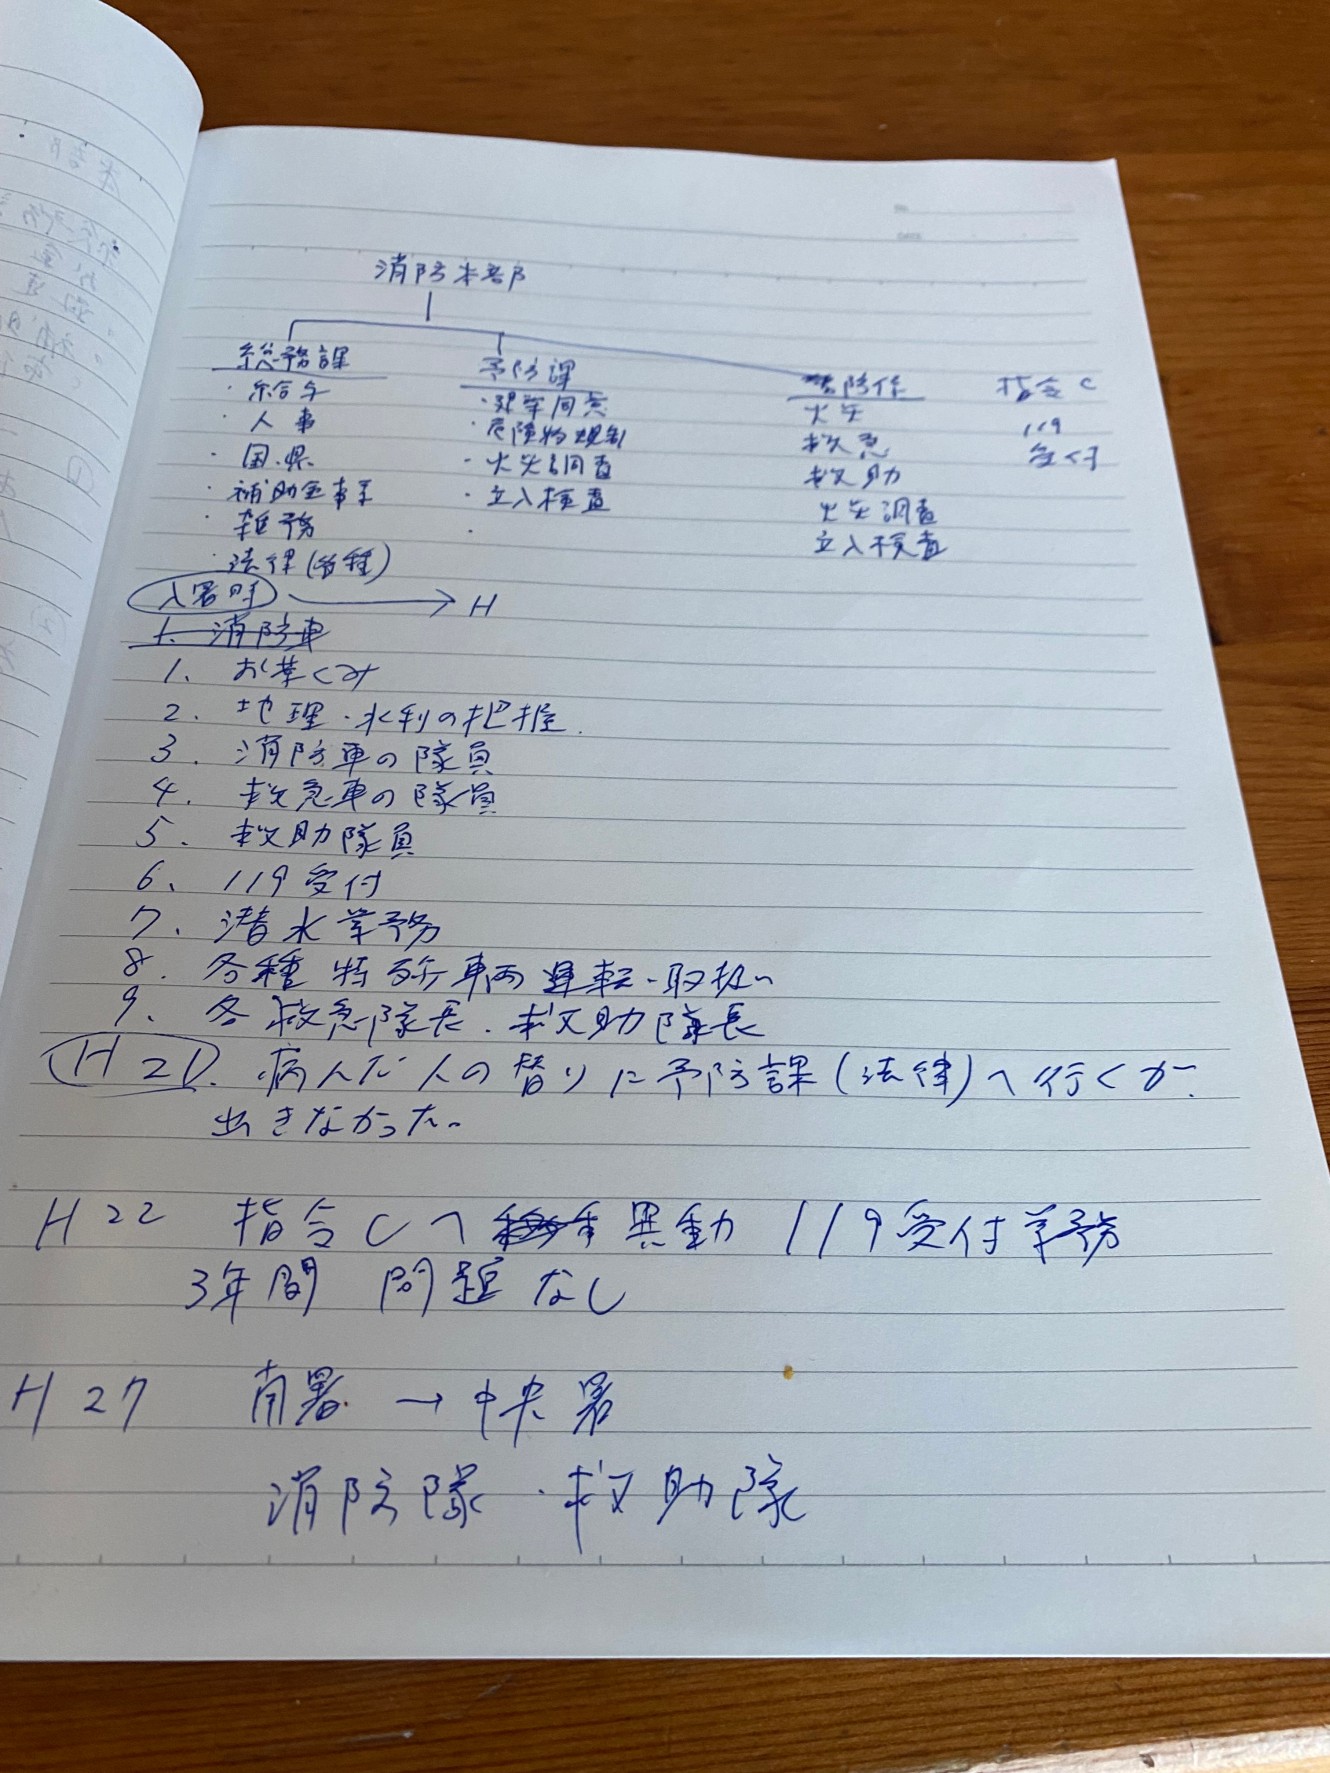 消防本部
総務課
・給与
・人事
・国.県
・補助金事業
・雑務
・法律(各種)
予防課
・建築同意
・危険物規制
・火災調査
・立入検査
・
火災
救急
救助
火災調査
立入検査
指令C
119
受付
入署時 → H
1. 消防車
1. お茶くみ
2. 地理・水利の把握.
3. 消防車の隊員
4. 救急車の隊員
5. 救助隊員
6. 119受付
7. 潜水業務
8. 各種特殊車両運転・取扱い
9. 各救急隊長.救助隊長
H21. 病んだ人の替りに予防課(法律)へ行くが.
出きなかった。
H22 指令Cへ 異動 119受付業務
3年間 問題なし
H27 南署 → 中央署
消防隊・救助隊